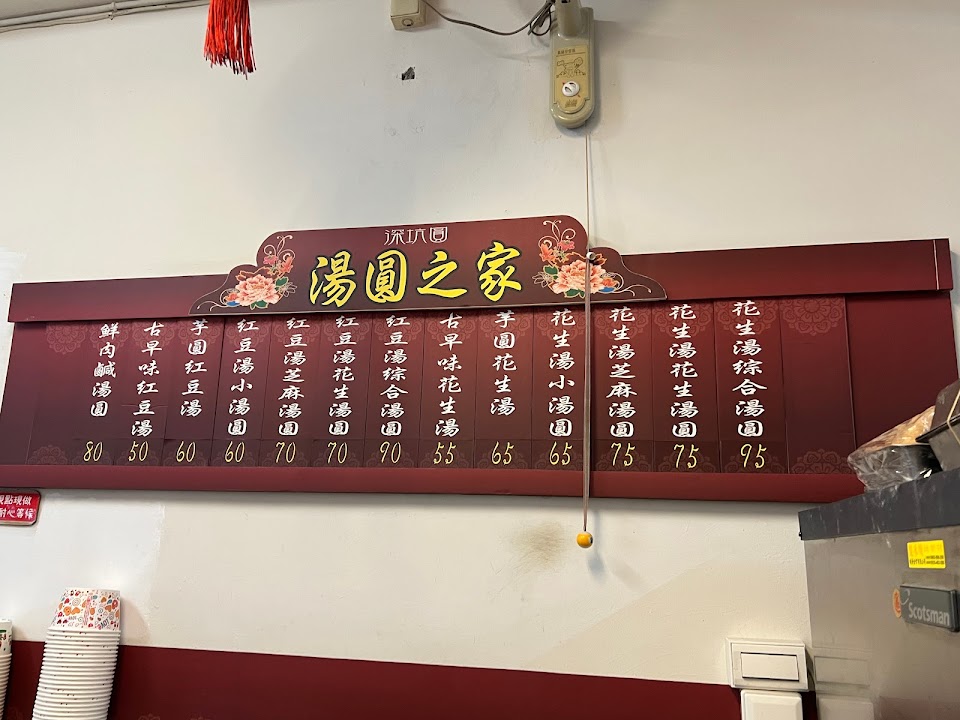 深坑圓
湯圓之家
花生湯綜合湯圓 95
花生湯花生湯圓 75
花生湯芝麻湯圓 75
花生湯小湯圓 65
芋圓花生湯 65
古早味花生湯 55
紅豆湯綜合湯圓 90
紅豆湯花生湯圓 70
紅豆湯芝麻湯圓 70
紅豆湯小湯圓 60
芋圓紅豆湯 60
古早味紅豆湯 50
鮮肉鹹湯圓 80
現點現做
耐心等候
Scotsman